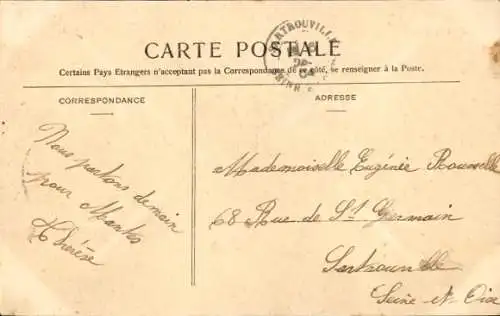 CARTE POSTALE
SARTROUVILLE
Certains Pays Etrangers n'acceptant pas la Correspondance de ce côté, se renseigner à la Poste.
CORRESPONDANCE
ADRESSE
Nous partons demain
pour Mantes
Thérèse
Mademoiselle Eugénie
68 Rue de St Germain
Sartrouville
Seine et Oise